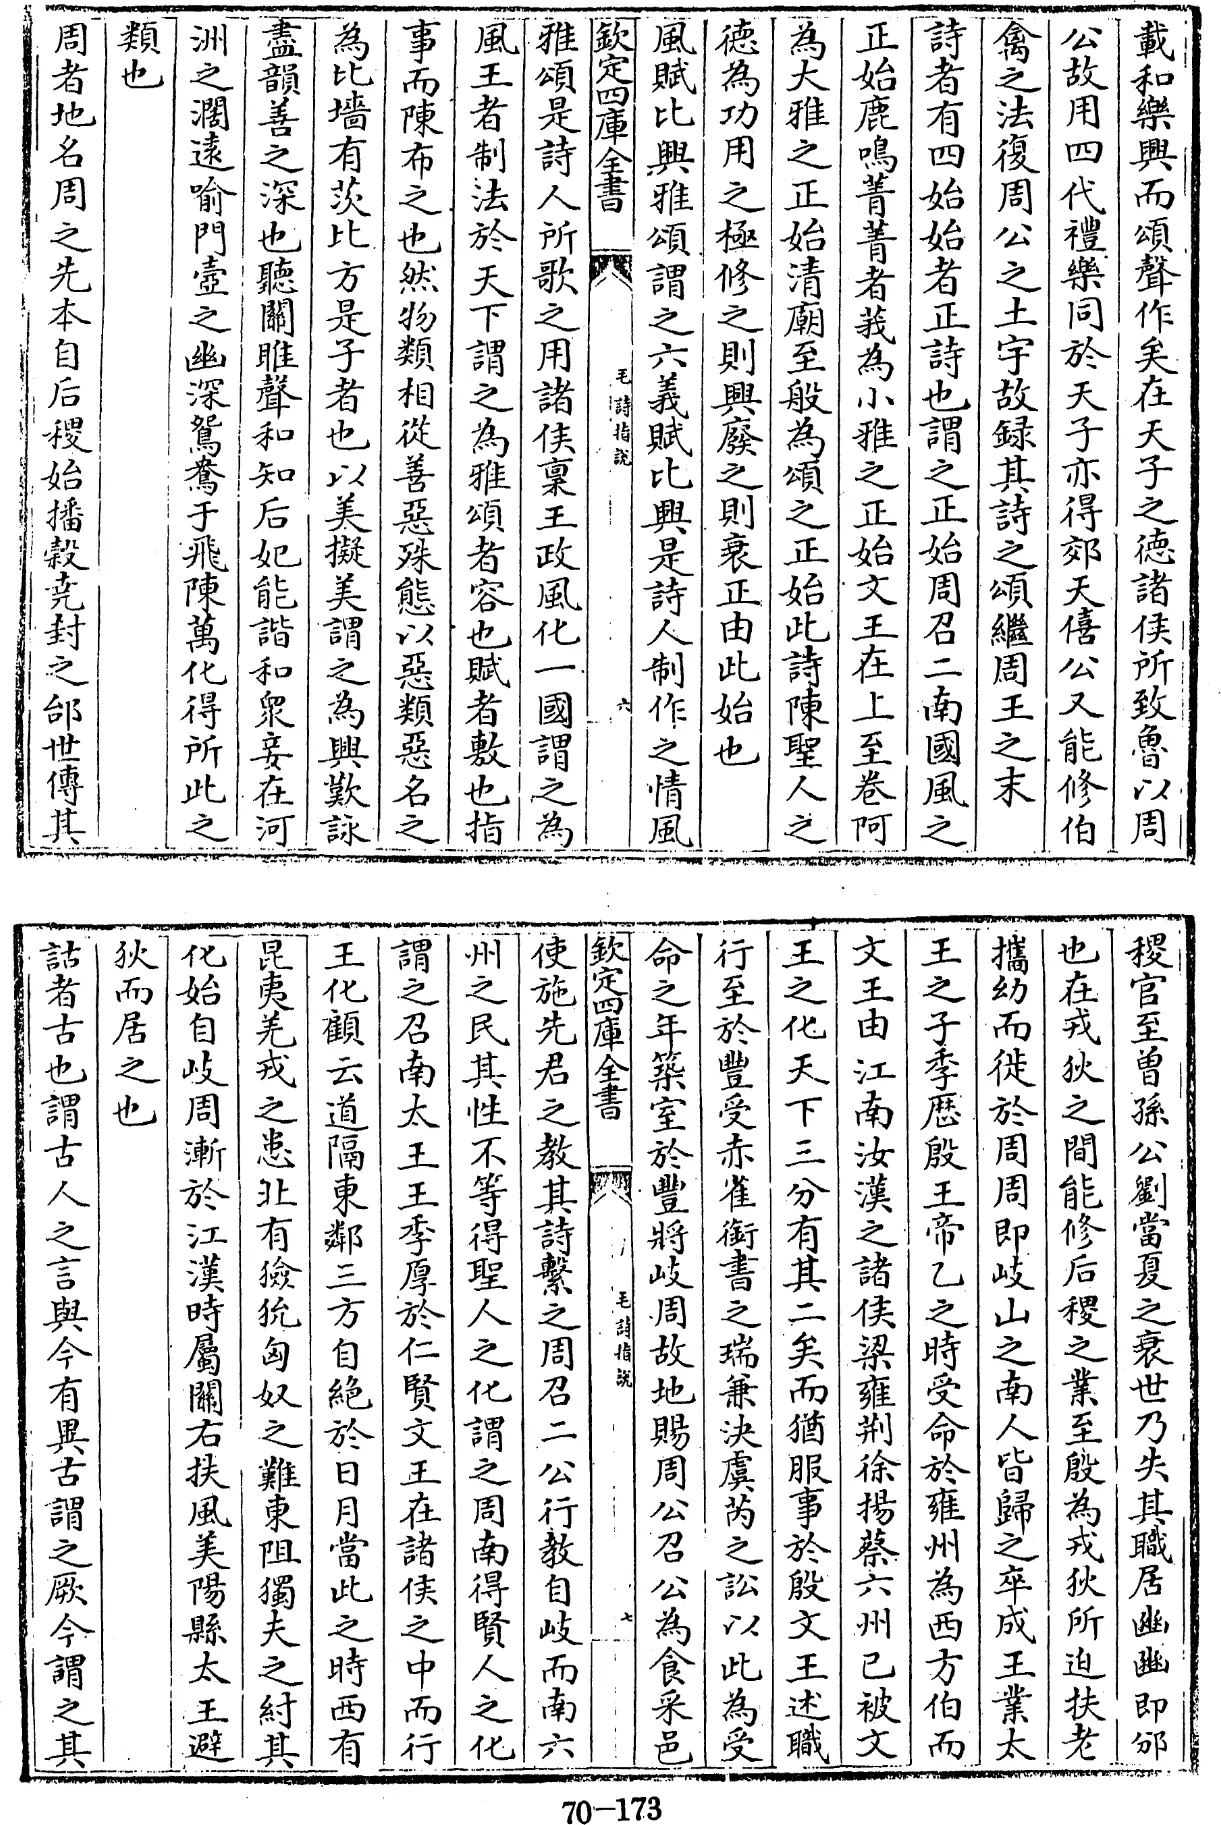 載和樂興而頌聲作矣在天子之德諸侯所致魯以周
公故用四代禮樂同於天子亦得郊天僖公又能修伯
禽之法復周公之土宇故録其詩之頌繼周王之末
詩者有四始始者正詩也謂之正始周召二南國風之
正始鹿鳴至菁菁者莪為小雅之正始文王在上至卷阿
為大雅之正始清廟至般為頌之正始此詩陳聖人之
德為功用之極修之則興廢之則衰正由此始也
風賦比興雅頌謂之六義賦比興是詩人制作之情風
欽定四庫全書
毛詩指說
六
雅頌是詩人所歌之用諸侯稟王政風化一國謂之為
風王者制法於天下謂之為雅頌者容也賦者敷也指
事而陳布之也然物類相從善惡殊態以惡類惡名之
為比墻有茨比方是子者也以美擬美謂之為興歎詠
盡韻善之深也聽關雎聲和知后妃能諧和衆妾在河
洲之濶遠喻門壼之幽深鴛鴦于飛陳萬化得所此之
類也
周者地名周之先本自后稷始播穀堯封之邰世傳其
稷官至曽孫公劉當夏之衰世乃失其職居幽豳即邠
也在戎狄之間能修后稷之業至殷為戎狄所迫扶老
攜幼而徙於周周即岐山之南人皆歸之卒成王業太
王之子季歴殷王帝乙之時受命於雍州為西方伯而
文王由江南汝漢之諸侯梁雍荆徐揚蔡六州已被文
王之化天下三分有其二矣而猶服事於殷文王述職
行至於豐受赤雀銜書之瑞兼決虞芮之訟以此為受
命之年築室於豐將岐周故地賜周公召公為食采邑
欽定四庫全書
毛詩指說
七
使施先君之教其詩繫之周召二公行教自岐而南六
州之民其性不等得聖人之化謂之周南得賢人之化
謂之召南太王王季厚於仁賢文王在諸侯之中而行
王化顧云道隔東鄰三方自絶於日月當此之時西有
昆夷羌戎之患北有獫狁匈奴之難東阻獨夫之紂其
化始自岐周漸於江漢時屬關右扶風美陽縣太王避
狄而居之也
詁者古也謂古人之言與今有異古謂之厥今謂之其
70-173